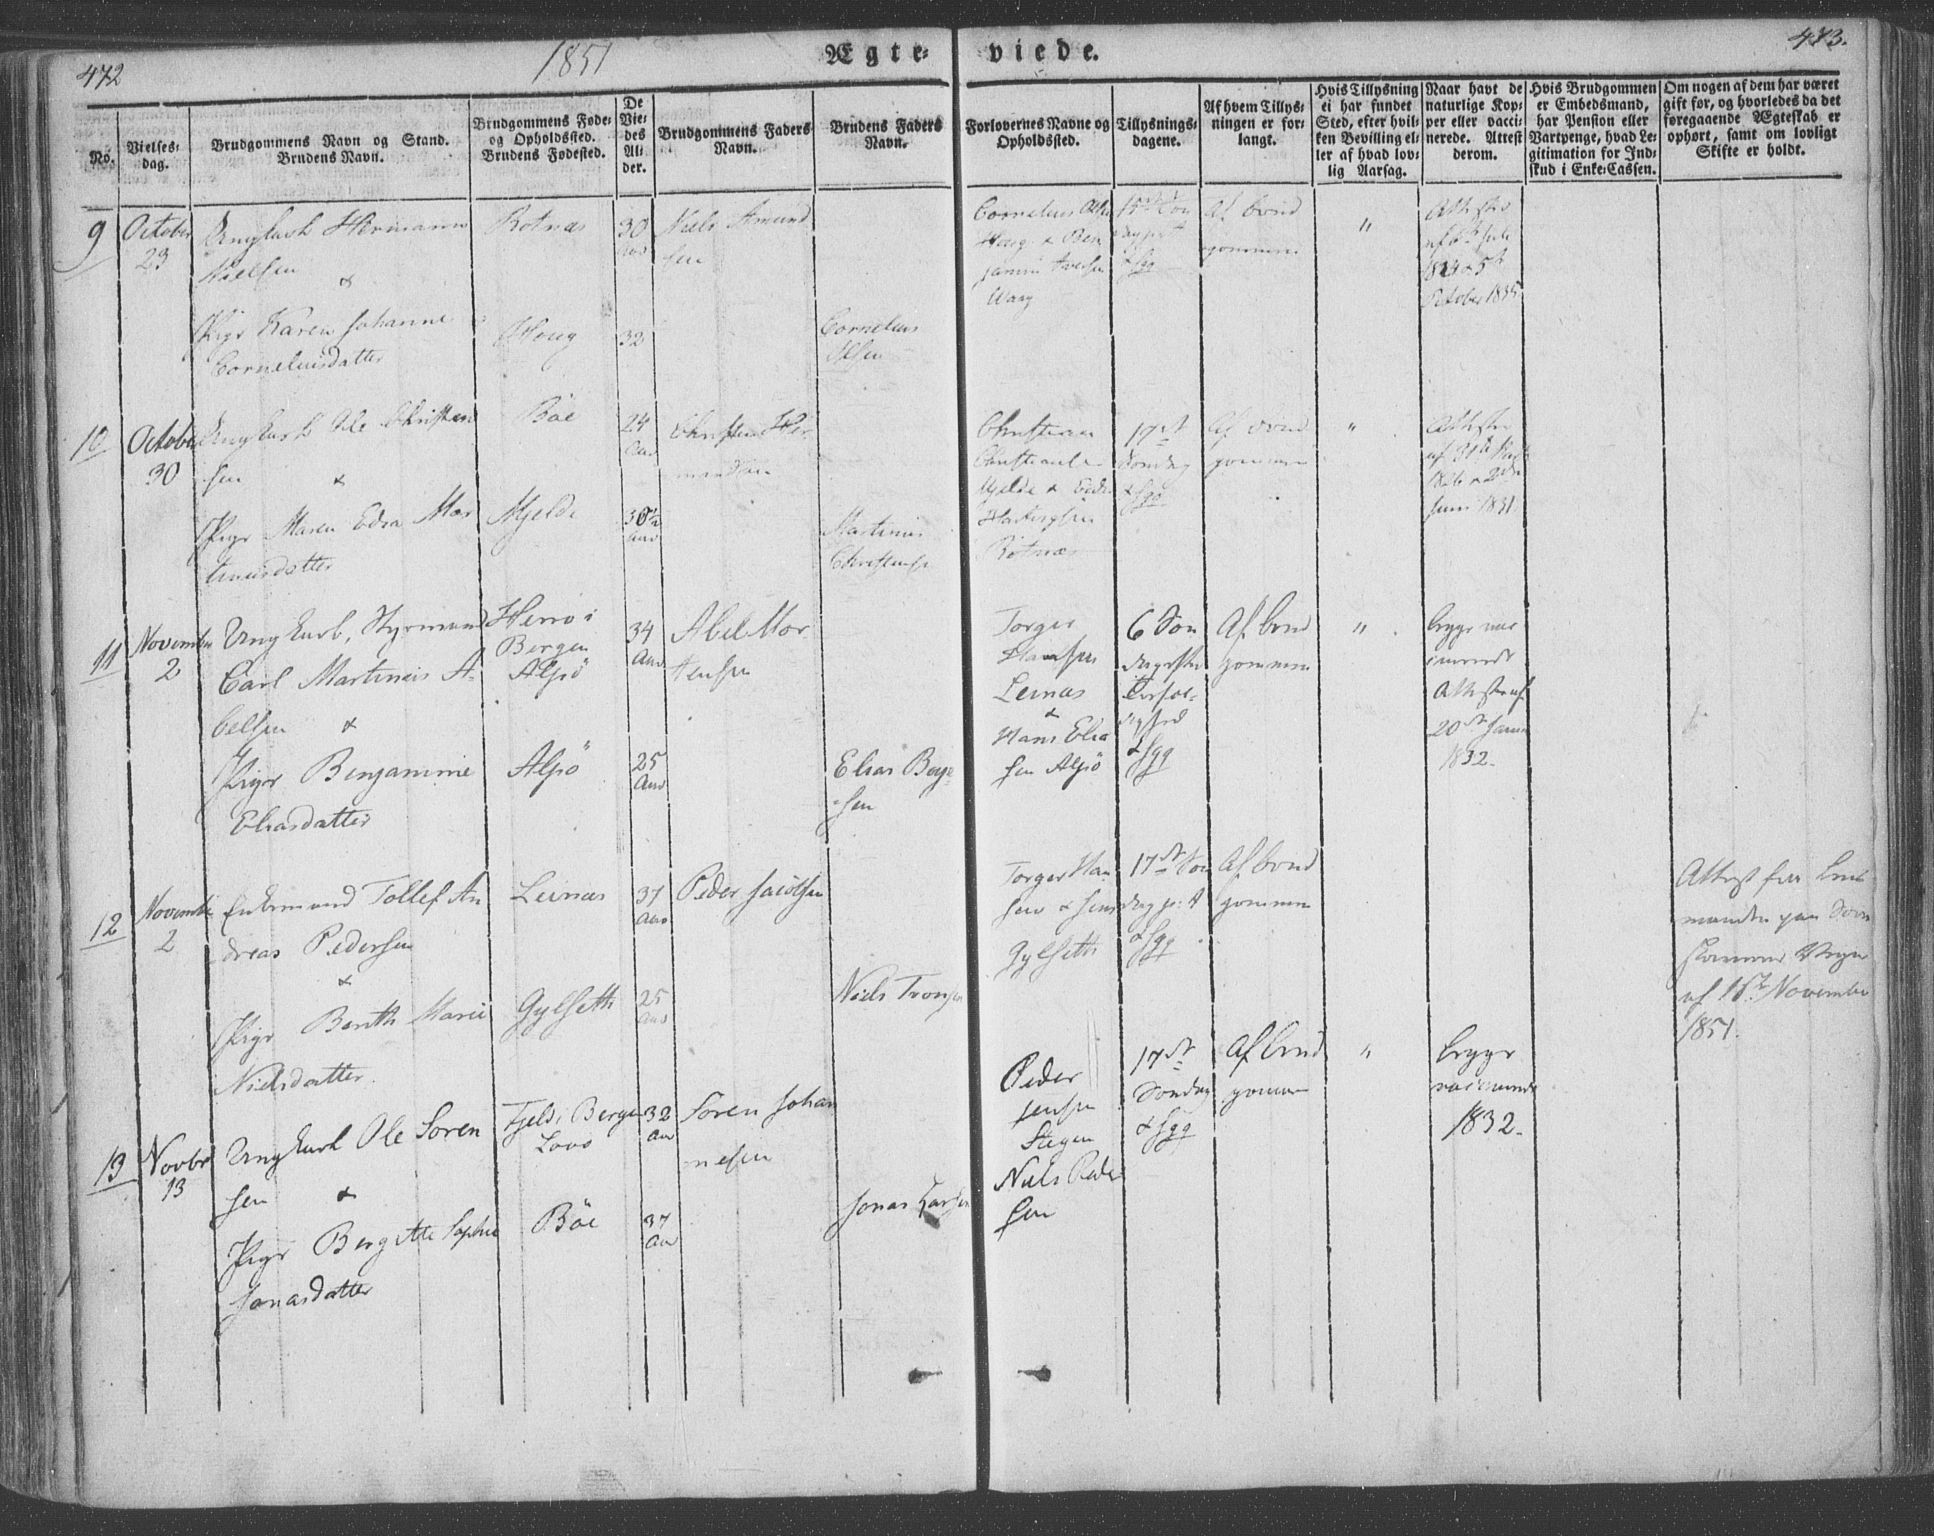 472
1851
Ægte-
viede.
473.
No.
Vielses-
dag.
Brudgommens Navn og Stand.
Brudens Navn.
Brudgommens Føde-
og Opholdssted.
Brudens Fødested.
De
Vie-
des
Al-
der.
Brudgommens Faders
Navn.
Brudens Faders
Navn.
Forlovernes Navne og
Opholdssted.
Tillysnings-
dagene.
Af hvem Tillys-
ningen er for-
langt.
Hvis Tillysning
ei har fundet
Sted, efter hvil-
ken Bevilling el-
ler af hvad lov-
lig Aarsag.
Naar havt de
naturlige Kop-
per eller vacci-
nerede. Attest
derom.
Hvis Brudgommen
er Embedsmand,
har Pension eller
Vartpenge, hvad Le-
gitimation for Ind-
skud i Enke-Cassen.
Om nogen af dem har været
gift før, og hvorledes da det
foregaaende Ægteskab er
ophørt, samt om lovligt
Skifte er holdt.
9
October
23
Ungkarl Hermann
Nielsen
&
Pige Karen Johanne
Corneliusdatter
Rotnæs
Houg
30
Aar
32
Niels Amund
sen
Cornelius
Olsen
Cornelius Olsen
Houg & Ben
jamin Iversen
Waag
15de Søn
dag p. T
& fgg
Af brud
gommen
"
Attester
1824 & 5te
October 1835
10
October
30
Ungkarl Ole Christen
sen
&
Pige Maren Edva Mar
tinusdatter
Böe
Mjelde
24
Aar
30½
Aar
Christen Her
mandsen
Martinus
Christensen
Christian
Mjelde &
Rotnæs
17de
Søndag
& fgg
Af brud
gommen
"
Attester
Juni 1831
11
November
2
Ungkarl, Styrmand
Carl Martinus A-
belsen &
Pige Benjamine
Eliasdatter
Herrö i
Bergen
Alsö
Alsö
34
Aar
25
Aar
Abel Mor
tensen
Elias Benja-
sen
Torger
Hansen
Leinæs
&
Hans Elia
sen Alsö
6 Søn
& fgg
Af brud
gommen
"
Begge vac
cinerede
Attest af
20de
1832.
12
November
2
Enkemand Tollef An
dreas Pedersen
&
Pige Benth Marie
Nielsdatter.
Leinæs
Gylseth
37
Aar
25
Aar
Peder Jacobsen
Niels Tronsen
Torger Han
sen & Jens
Gylseth
17de Søn
dag p: T
& fgg
Af brud
gommen
Attest fra
af 1ste November
1851.
13
Novbr
13
Ungkarl Ole Sören
sen &
Pige Bergitte Sophie
Jonasdatter
Fjeld, Bergen
Lovö
Böe
32
Aar
37
Aar
Sören Johan
nesen
Jonas Larsen
Peder
Jensen
Stegen
Niels Peder
sen
17de
Søndag
& fgg
Af brud
gommen
"
begge
vaccinerede
1832.